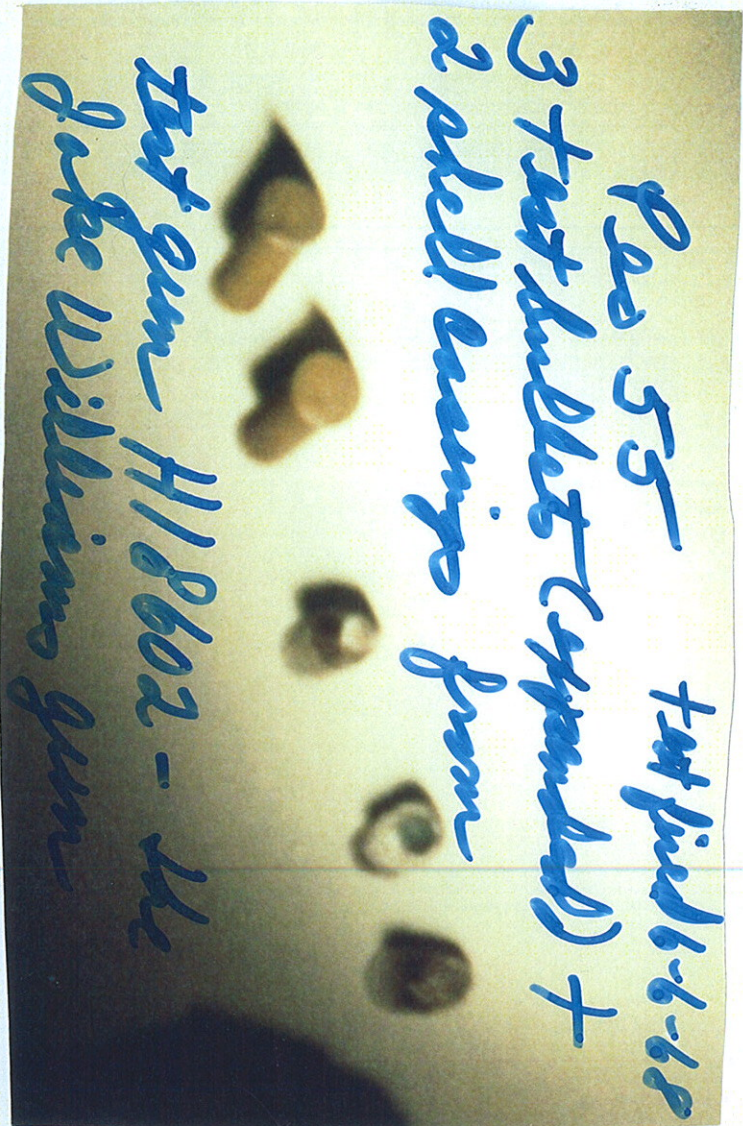 Peo 55 test fired 6-6-68
3 test bullets (expanded) +
2 shell casings from
test gun H18602 - the
Jake Williams gun